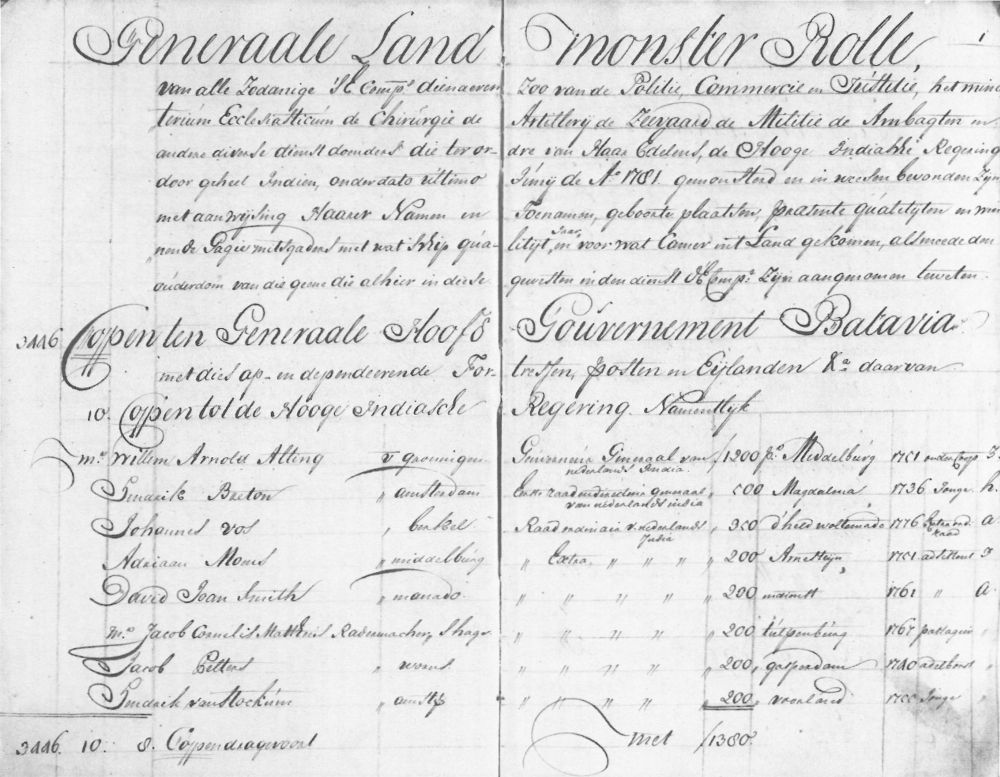 Generaale Land monster Rolle, 1
van alle Zodanige 'SE Comp.s dienaeren Zoo van de Politie, Commercie en Justitie, het mini
terium Ecclesiasticum de Chirurgie de Artillerij de Zeevaard de Militie de Ambagten en
andere diverse dienst doenders die ter or- dre van Haar Edelens, de Hooge Indiasche Regering
door geheel Indien, onder dato ultimo Junij de A.o 1781 gemonsterd en in weesen bevonden Zijn
met aanwijsing Haarer Namen en Toenamen, geboorte plaatsen, praesente qualityten en
nende Gagie mitsgaders met wat Schip qua- lityt, Jaar, en voor wat Camer int Land gekomen, alsmede den
ouderdom van die geene die alhier in deese gewesten in den dienst d'E Comp.e Zijn aangenomen teweten.
3446 Coppen ten Generaale Hoofd Gouvernement Batavia.
met dies ap- en dependeerende For- tressen, posten en Eijlanden &a daarvan
10. Coppen tot de Hooge Indiasche Regering Namentlyk
m.r Willem Arnold Alting v groningen Gouverneur Generaal van nederlands India ƒ1200 p.r Middelburg 1751 onder Coop
Hendrik Breton " amsterdam Eerste raad en directeur generaal van nederlands india " 500 Magdalena 1736 Jonge h.
Johannes vos " berkel Raad ordinair v. nederlands India " 350 d'heer woltemade 1776 Extra ord raad a
Adriaan Moens " middelburg " Extra, " " " " 200 Amstelveen 1751 adsistent
David Jean Smith " manado. " " " " " 200 1761 " a.
m.r Jacob Cornelis Mattheus Radermacher, s hage " " " " " 200 tulpenburg 1767 passagier
Jacob Petters " " " " " " 200 gasperdam 1740 adelborst
Hendrik van Stockum " amst.d " " " " " 200 voorland 1755 Jonge "
3446. 10. 8. Coppen dragevoort met ƒ1380.